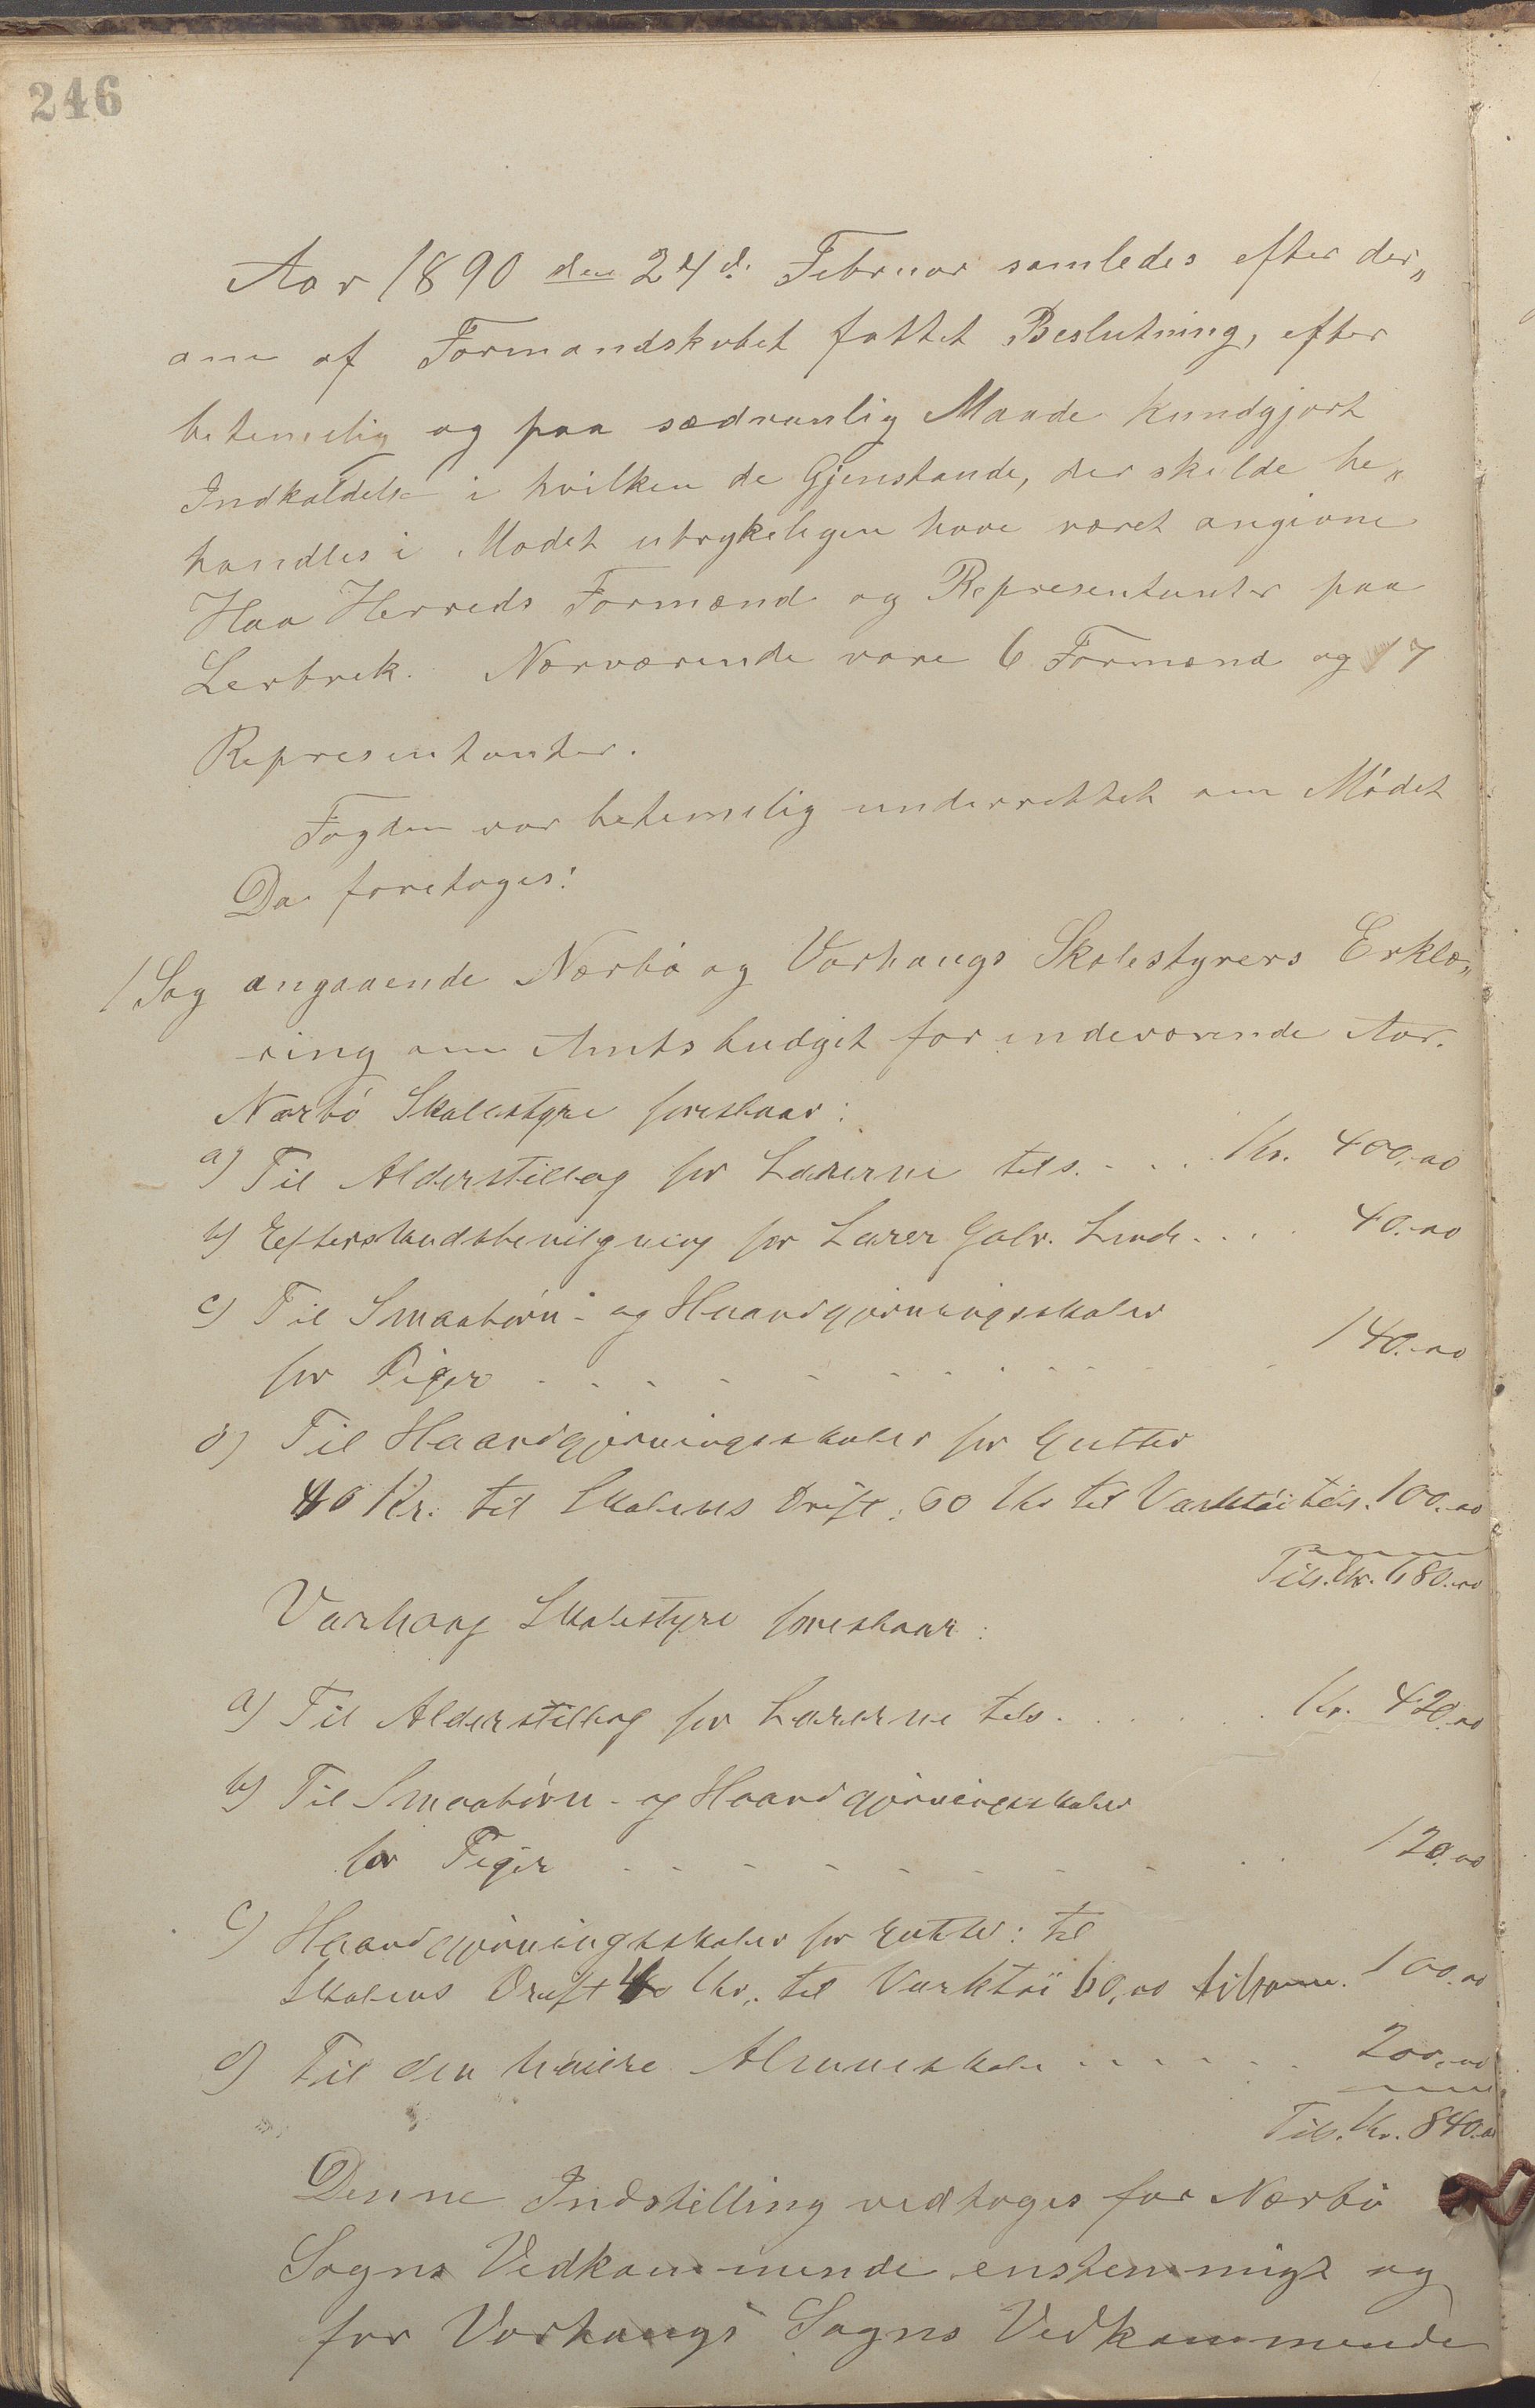 246
Aar 1890 den 24d. Februar samledes efter der„
om af Formandskabet fattet Beslutning, efter
betimelig og paa sædvanlig Maade kundgjort
Indkaldelse i hvilken de Gjenstande, der skulde be„
handles i Mødet utrykeligen have været angivne
Haa Herreds Formænd og Representanter paa
Lerbrek. Nærværende vare 6 Formænd og 17
Representanter.
Fogden var betimelig underrettet om Mødet
Da foretoges:
1 Sag angaaende Nærbø og Varhaugs Skolestyrers Erklæ„
ring om Amtsbudget for indeværende Aar.
Nærbø Skolestyre foreslaar:
a) Til Alderstillæg for Lærerne tils. . . . Kr. 400.00
b) Efterslandsbevilgning for Lærer Gabr. Lende . . . . 40.00
c) Til Smaabørn- og Haandgjerningsskoler
for Piger . . . . . . . . . . 140.00
d) Til Haandgjerningsskoler for Gutter
40 Kr. til Skolens Drift, 60 Kr til Værktøi tils. 100.00
Tils. Kr. 680.00
Varhaug Skolestyre foreslaar:
a) Til Alderstillæg for Lærerne tils. . . . . . . Kr. 420.00
b) Til Smaabørn- og Haandgjerningsskoler
for Piger . . . . . . . . . . 120.00
c) Haandgjerningsskoler for Gutter: til
Skolens Drift 40 Kr., til Værktøi 60,00 tilsam. 100.00
d) Til den høiere Almueskole . . . . . . 200,00
Tils. Kr. 840.00
Denne Indstilling vedtoges for Nærbø
Sogns Vedkommende enstemmigt og
for Varhaugs Sogns Vedkommende